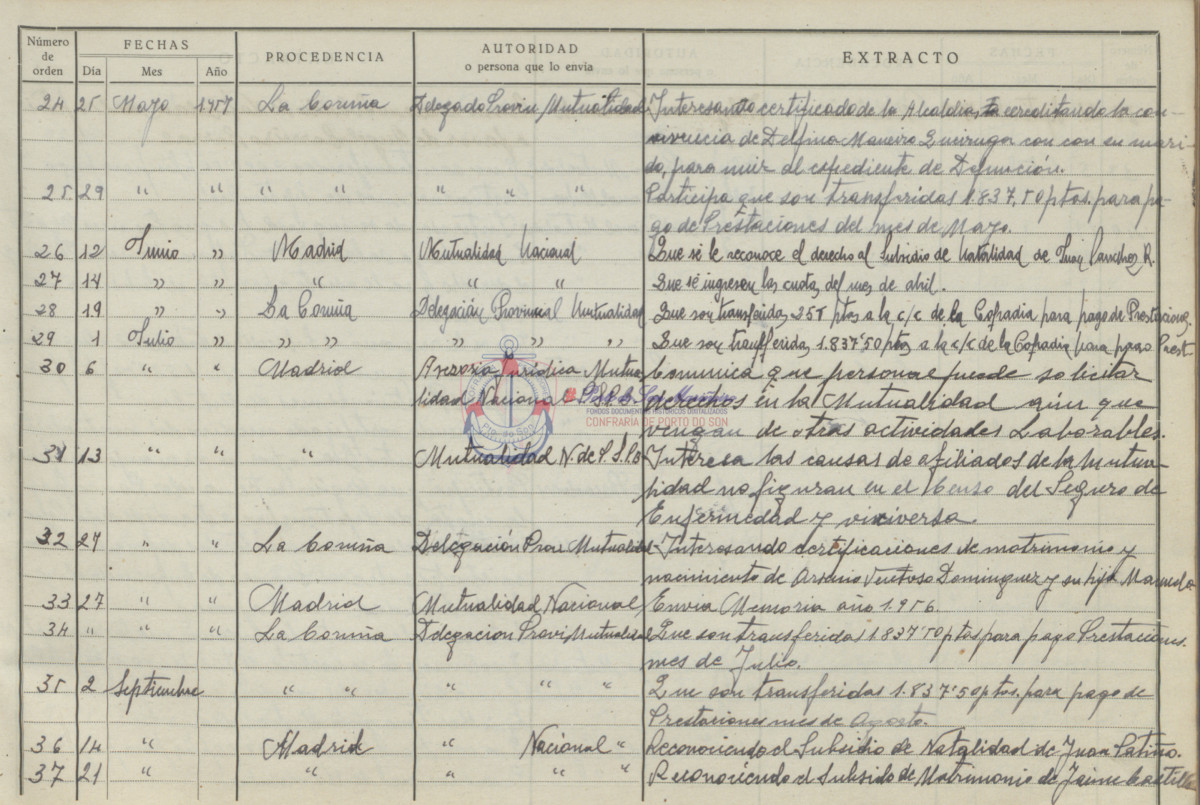 Número de orden FECHAS PROCEDENCIA AUTORIDAD o persona que lo envía EXTRACTO
Día Mes Año
24 25 Mayo 1.957 La Coruña Delegado Provin Mutualidad Interesando certificado de la Alcaldia, acreditando la con-
vivencia de Delfina Maneiro Queiruga con con su mari-
do, para unir al expediente de Defunción.
25 29 " " " " " " " Participa que son transferidas 1.837,50 ptas. para pa-
go de Prestaciones del mes de Mayo.
26 12 Junio " Madrid Mutualidad Nacional Que se le reconoce el derecho al Subsidio de Natalidad de Juan Sanchez R.
27 14 " " " " " Que se ingresen las cuotas del mes de abril.
28 19 " " La Coruña Delegación Provincial Mutualidad Que son transferidas 255 ptas a la c/c de la Cofradia para pago de Prestaciones
29 1 Julio " " " " " " " Que son transferidas 1.837'50 ptas a la c/c de la Cofradia para pago Prest.
30 6 " " Madrid Asesoria Juridica Mutua- Comunica que personal puede solicitar
lidad Nacional P.S.P.B. derechos en la Mutualidad aún que
vengan de otras actividades Laborables.
31 13 " " " Mutualidad N. de P.S.P.B. Interesa las causas de afiliados de la Mutua-
lidad no figuran en el Censo del Seguro de
Enfermedad y viciversa.
32 27 " " La Coruña Delegación Prov. Mutualidad Interesando certificaciones de matrimonio y
nacimiento de Arsenio Ventoso Dominguez y su hijo Manuel.
33 27 " " Madrid Mutualidad Nacional Envia Memoria año 1.956.
34 " " " La Coruña Delegacion Provi Mutualidad Que son transferidas 1.837'50 ptas para pago Prestaciones
mes de Julio.
35 2 Septiembre " " " " " Que son transferidas 1.837'50 ptas. para pago de
Prestaciones mes de Agosto.
36 14 " Madrid " Nacional " Reconociendo el Subsidio de Natalidad de Juan Patiño.
37 21 " " " " " Reconociendo el Subsido de Matrimonio de Jaime Castill
FONDOS DOCUMENTAIS HISTÓRICOS DIXITALIZADOS
CONFRARÍA DE PORTO DO SON